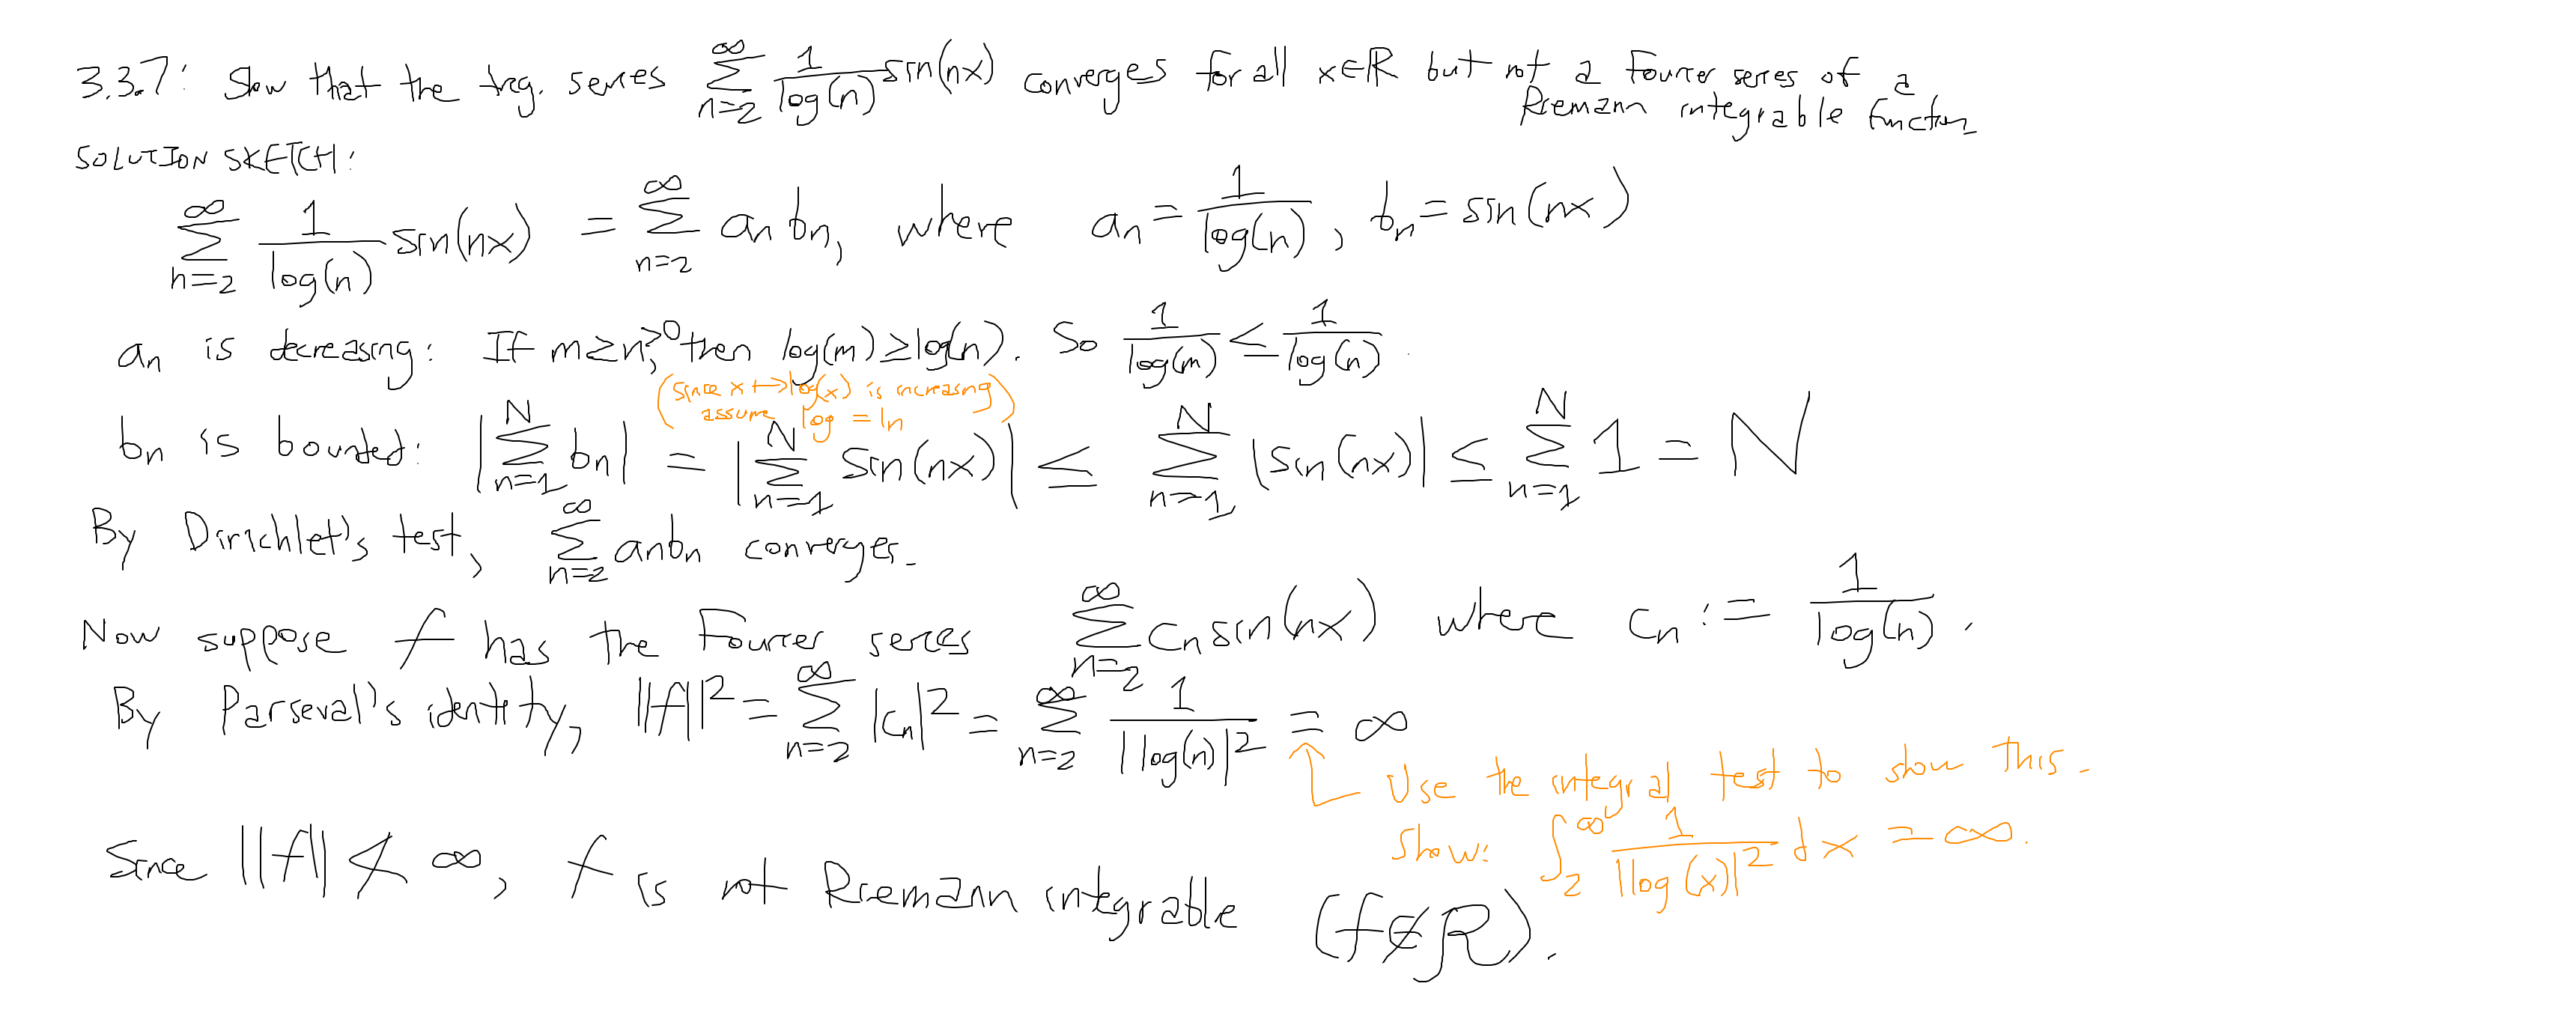 3.3.7: Show that the trig. series $\sum_{n=2}^{\infty} \frac{1}{\log(n)} \sin(nx)$ converges for all $x \in \mathbb{R}$ but not a Fourier series of a
Riemann integrable function
SOLUTION SKETCH:
$\sum_{n=2}^{\infty} \frac{1}{\log(n)} \sin(nx) = \sum_{n=2}^{\infty} a_n b_n$, where $a_n = \frac{1}{\log(n)}$, $b_n = \sin(nx)$
$a_n$ is decreasing: If $m \geq n > 0$, then $\log(m) \geq \log(n)$. So $\frac{1}{\log(m)} \leq \frac{1}{\log(n)}$.
(since $x \mapsto \log(x)$ is increasing
assume $\log = \ln$)
$b_n$ is bounded: $\left|\sum_{n=1}^{N} b_n\right| = \left|\sum_{n=1}^{N} \sin(nx)\right| \leq \sum_{n=1}^{N} |\sin(nx)| \leq \sum_{n=1}^{N} 1 = N$
By Dirichlet's test, $\sum_{n=2}^{\infty} a_n b_n$ converges.
Now suppose $f$ has the Fourier series $\sum_{n=2}^{\infty} c_n \sin(nx)$ where $c_n := \frac{1}{\log(n)}$.
By Parseval's identity, $\|f\|^2 = \sum_{n=2}^{\infty} |c_n|^2 = \sum_{n=2}^{\infty} \frac{1}{|\log(n)|^2} = \infty$
Use the integral test to show this.
Show: $\int_2^{\infty} \frac{1}{|\log(x)|^2} dx = \infty$.
Since $\|f\| \not< \infty$, $f$ is not Riemann integrable ($f \notin \mathcal{R}$).